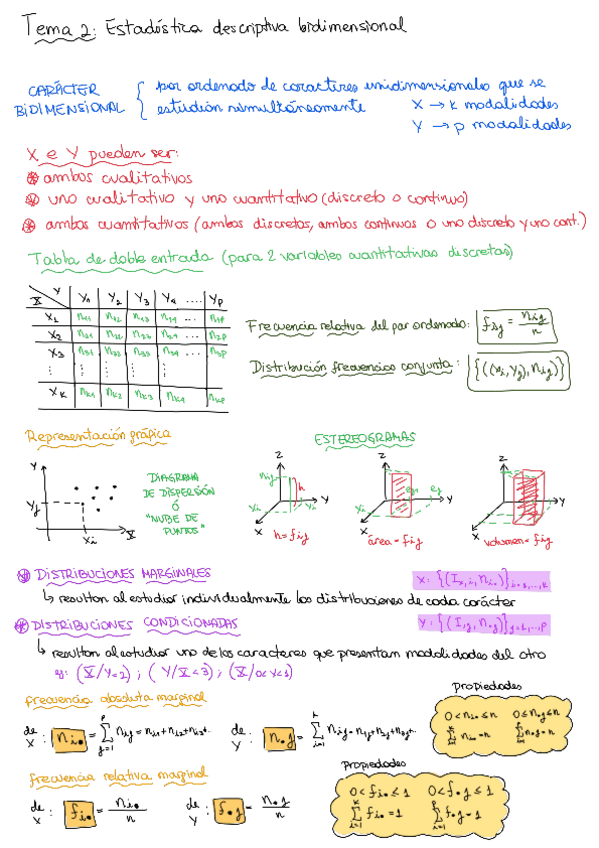 Tema 2: Estadística descriptiva bidimensional
CARÁCTER BIDIMENSIONAL { par ordenado de caracteres unidimensionales que se
estudian simultáneamente X → k modalidades
Y → p modalidades
X e Y pueden ser:
⊛ ambos cualitativos
⊛ uno cualitativo y uno cuantitativo (discreto o continuo)
⊛ ambos cuantitativos (ambos discretos, ambos continuos o uno discreto y uno cont.)
Tabla de doble entrada (para 2 variables cuantitativas discretas)
X Y Y₁ Y₂ Y₃ Y₄ .... Yp
X₁ n₁₁ n₁₂ n₁₃ n₁₄ ... n₁p
X₂ n₂₁ n₂₂ ... n₂p
X₃ n₃₁ ... n₃p
Xk nk₁ nk₂ nk₃ nk₄ nkp
Frecuencia relativa del par ordenado: fij = nij/n
Distribución frecuencias conjunta: {((xi, yj), nij)}
Representación gráfica
ESTEREOGRAMAS
Y
yj
xi
X
DIAGRAMA
DE DISPERSIÓN
Ó
"NUBE DE
PUNTOS"
Z
nij
h
Y
X
h = fij
Z
Y
X
área = fij
Z
Y
X
volumen = fij
⊛ DISTRIBUCIONES MARGINALES
X: {(Ix,i, ni•)} i=1,...,k
↳ resultan al estudiar individualmente las distribuciones de cada carácter
⊛ DISTRIBUCIONES CONDICIONADAS
Y: {(Iy, n•j)} j=1,...,p
↳ resultan al estudiar uno de los caracteres que presentan modalidades del otro
ej: (X/Y=2) ; (Y/X<3) ; (X/0<Y<1)
frecuencia absoluta marginal
de X: ni• = Σ(j=1, p) nij = ni1+ni2+ni3+..
de Y: n•j = Σ(i=1, k) nij = n1j+n2j+n3j+..
Propiedades
0<ni•≤n 0≤n•j≤n
Σ ni•=n Σ n•j=n
frecuencia relativa marginal
de X: fi• = ni•/n
de Y: f•j = n•j/n
Propiedades
0<fi•≤1 0<f•j≤1
Σ(i=1, k) fi•=1 Σ(j=1, p) f•j=1